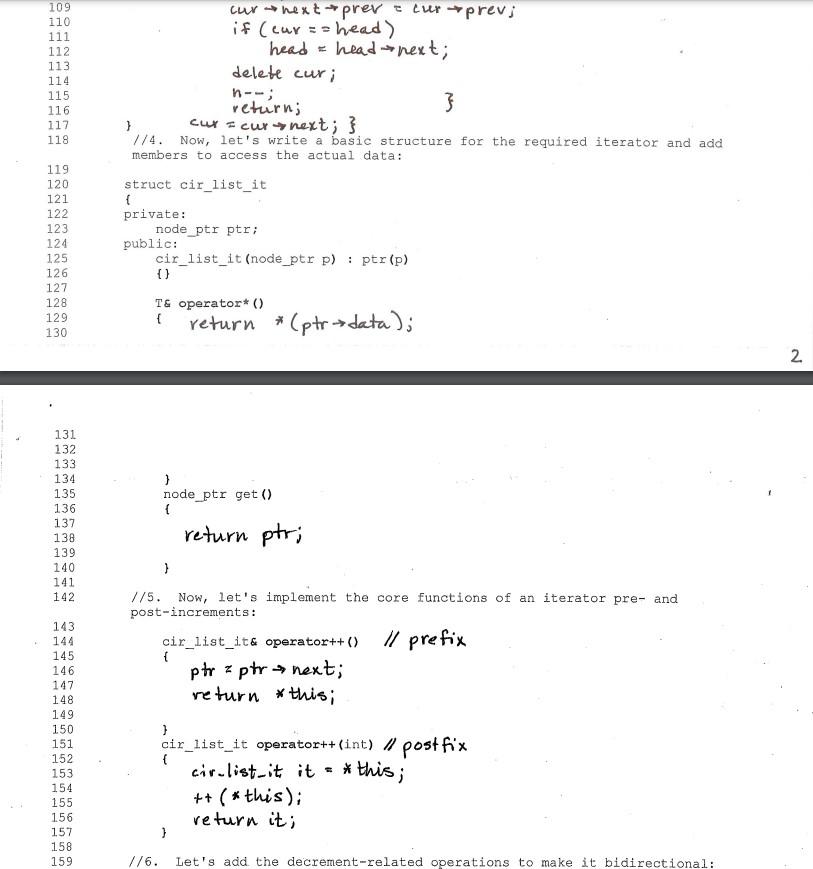 109 cur→next→prev = cur→prev;
110 if (cur == head)
111
112 head = head→next;
113
114 delete cur;
115 n--;
116 return; }
117 } cur = cur→next; }
118 //4. Now, let's write a basic structure for the required iterator and add
members to access the actual data:
119
120 struct cir_list_it
121 {
122 private:
123 node_ptr ptr;
124 public:
125 cir_list_it(node_ptr p) : ptr(p)
126 {}
127
128 T& operator*()
129 { return *(ptr→data);
130
2
131
132
133
134 }
135 node_ptr get()
136 {
137
138 return ptr;
139
140 }
141
142 //5. Now, let's implement the core functions of an iterator pre- and
post-increments:
143
144 cir_list_it& operator++() // prefix
145 {
146 ptr = ptr→next;
147
148 return *this;
149
150 }
151 cir_list_it operator++(int) // postfix
152 {
153 cir_list_it it = *this;
154
155 ++(*this);
156 return it;
157 }
158
159 //6. Let's add the decrement-related operations to make it bidirectional: